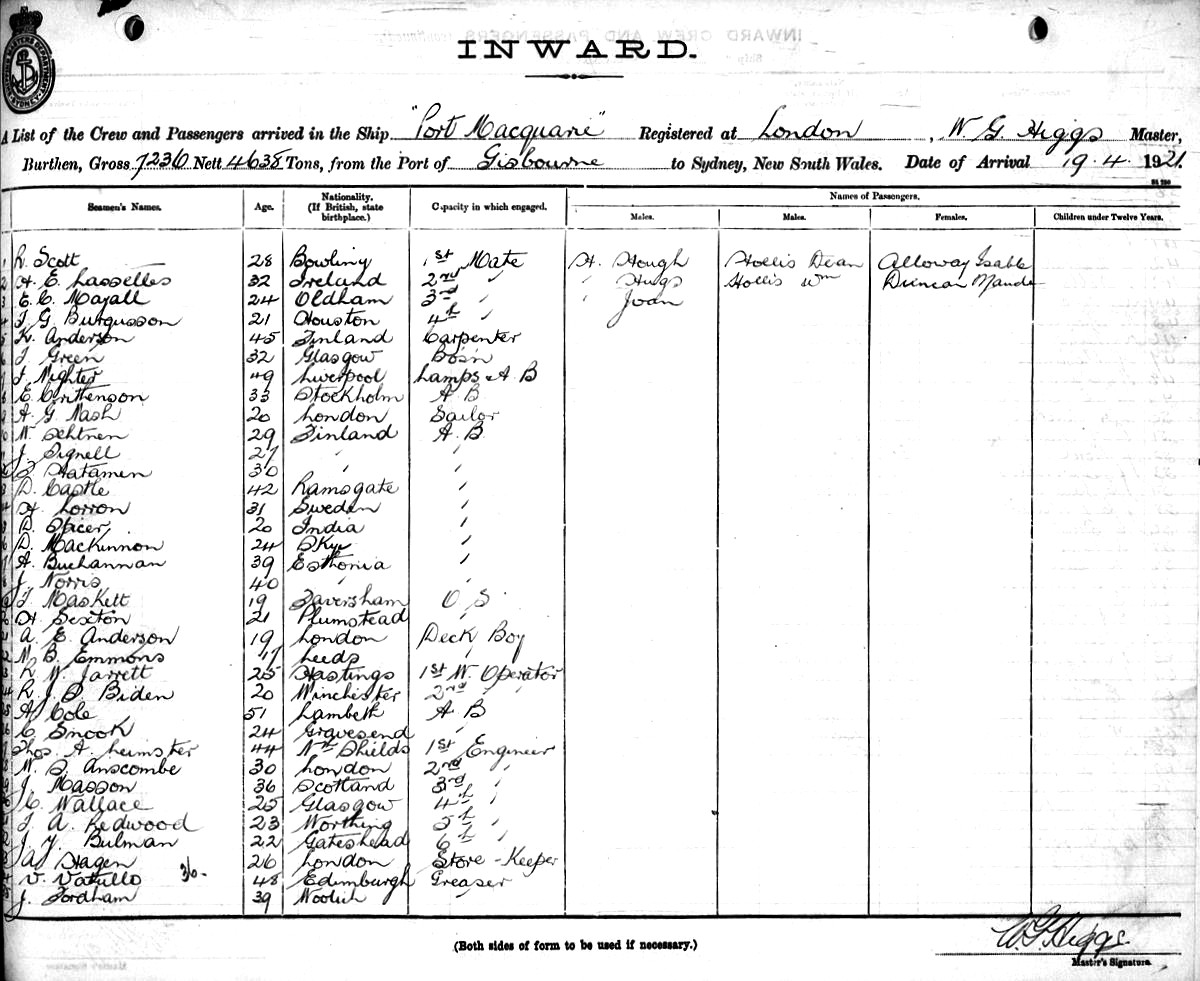 INWARD.
A List of the Crew and Passengers arrived in the Ship "Port Macquarie" Registered at London, W. G. Higgs Master,
Burthen, Gross 7236 Nett 4638 Tons, from the Port of Gisbourne to Sydney, New South Wales. Date of Arrival 19. 4. 1921.
Seamen's Names. Age. Nationality. (If British, state birthplace.) Capacity in which engaged. Names of Passengers.
Males. Males. Females. Children under Twelve Years.
1 R. Scott 28 Bowling 1st Mate H. Hough Hollis Dean Alloway Isable
2 H. E. Lasselles 32 Ireland 2nd " " Hugs Hollis Wm Duncan Maude
3 E. C. Mayall 24 Oldham 3rd " " Joan
4 J G Burgusson 21 Houston 4th "
5 K. Anderson 45 Finland Carpenter
6 J. Green 32 Glasgow Bosn
7 J. Nighter 49 Liverpool Lamps & A B
8 E. Crithenson 33 Stockholm A B
9 A. G. Nash 20 London Sailor
10 W. Sehtnen 29 Finland A. B
11 J. Signell 27 " "
12 Hatamen 30 " "
13 D. Castle 42 Ramsgate "
14 H. Lorron 31 Sweden "
15 D. Spicer 20 India "
16 D. Mackinnon 24 Skye "
17 A. Buchannan 39 Esthonia "
18 J. Norris 40 " "
19 T. Maskell 19 Faversham O S
20 H. Sexton 21 Plumstead "
21 A. E. Anderson 19 London Deck Boy
22 W. B. Emmons 17 Leeds "
23 R. W. Jarrett 25 Hastings 1st W. Operator
24 R. J. D. Biden 20 Winchester 2nd "
25 A. Cole 51 Lambeth A B
26 C. Snook 24 Gravesend "
27 Thos. A. Leimster 44 Nth Shields 1st Engineer
28 W. S. Anscombe 30 London 2nd "
29 J. Masson 36 Scotland 3rd "
30 C. Wallace 25 Glasgow 4th "
31 J. A. Redwood 23 Worthing 5th "
32 J. Y. Bulman 22 Gateshead 6th "
33 A. Hagen 26 London Store-Keeper
34 V. Vatullo 36- 48 Edimburgh Greaser
35 J. Fordham 39 Woolich "
(Both sides of form to be used if necessary.)
W. G. Higgs.
Master's Signature.